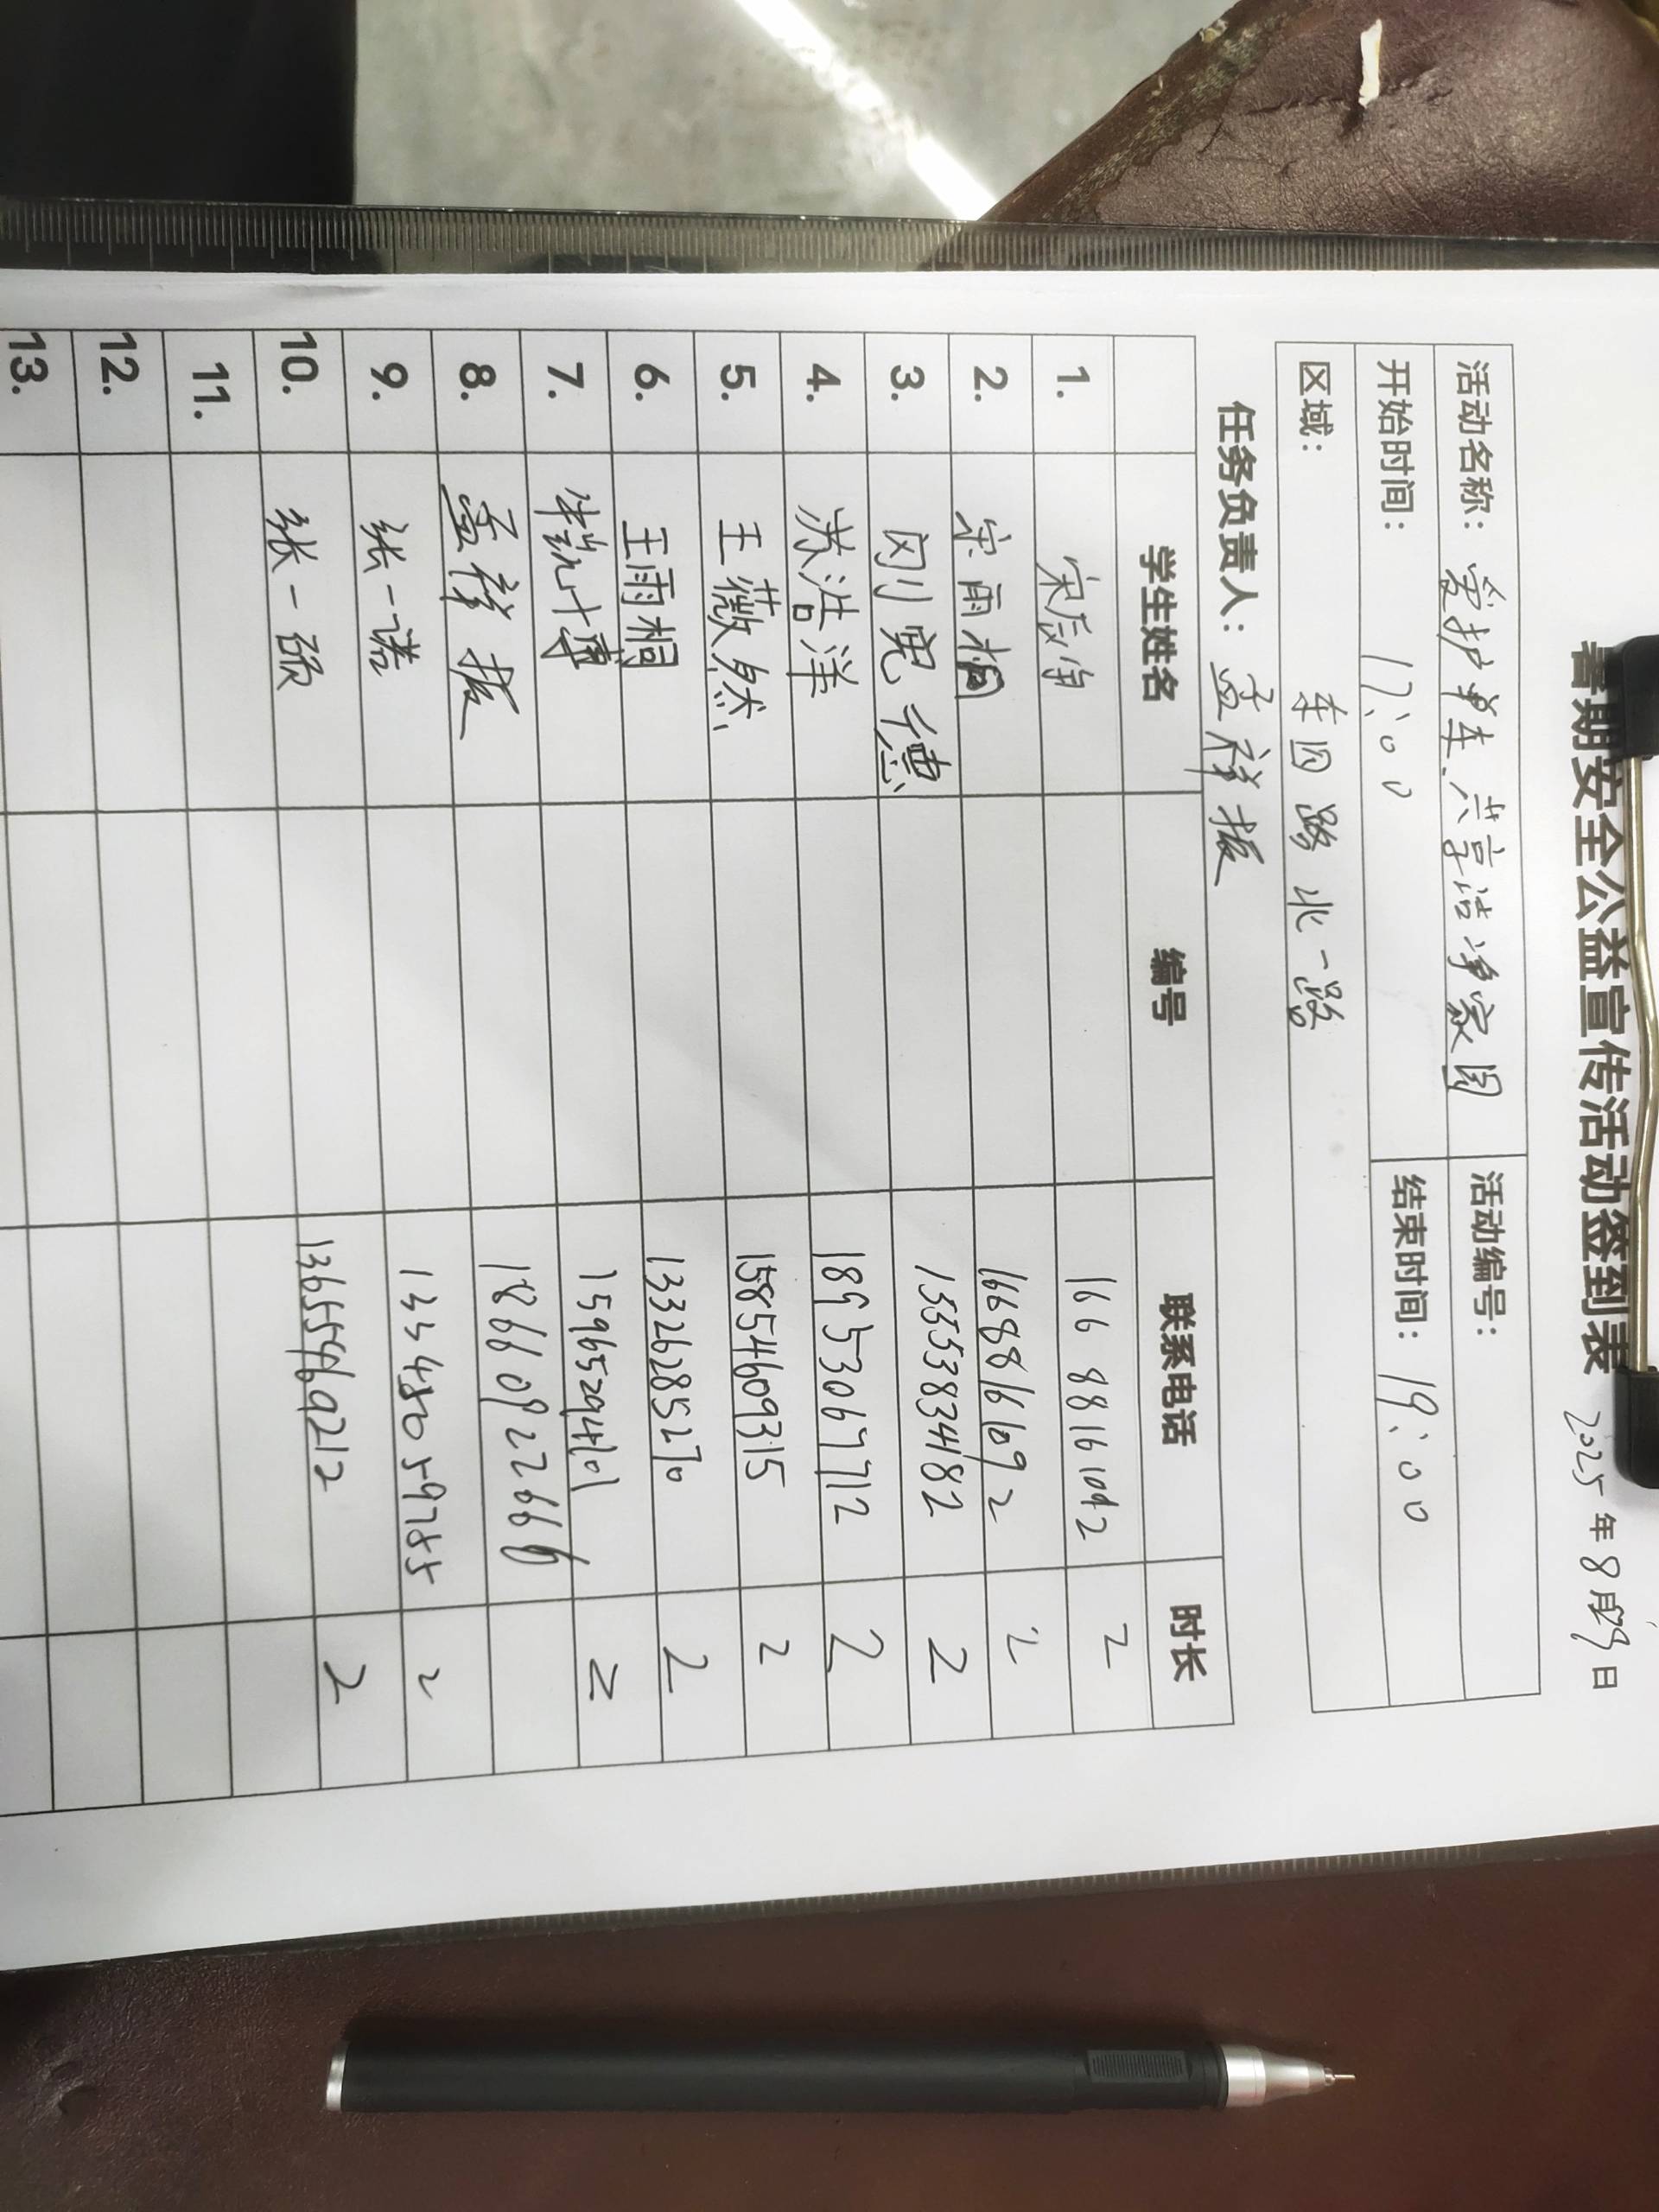 暑期安全公益宣传活动签到表
2025年8月29日
活动名称：爱护单车.共享洁净家园 活动编号：
开始时间：17:00 结束时间：19:00
区域：东四路北一路
任务负责人：孟祥振
学生姓名 编号 联系电话 时长
1. 宋辰 2
2. 宋雨桐 16688161692 2
3. 13553834182 2
4. 苏洁洋 18953067712 2
5. 王薇然 15854609315 2
6. 王雨桐 13326285270 2
7. 15965294101 2
8. 孟祥振 18660922666
9. 张一诺 13345059785 2
10. 张一硕 13655469212 2
11.
12.
13.